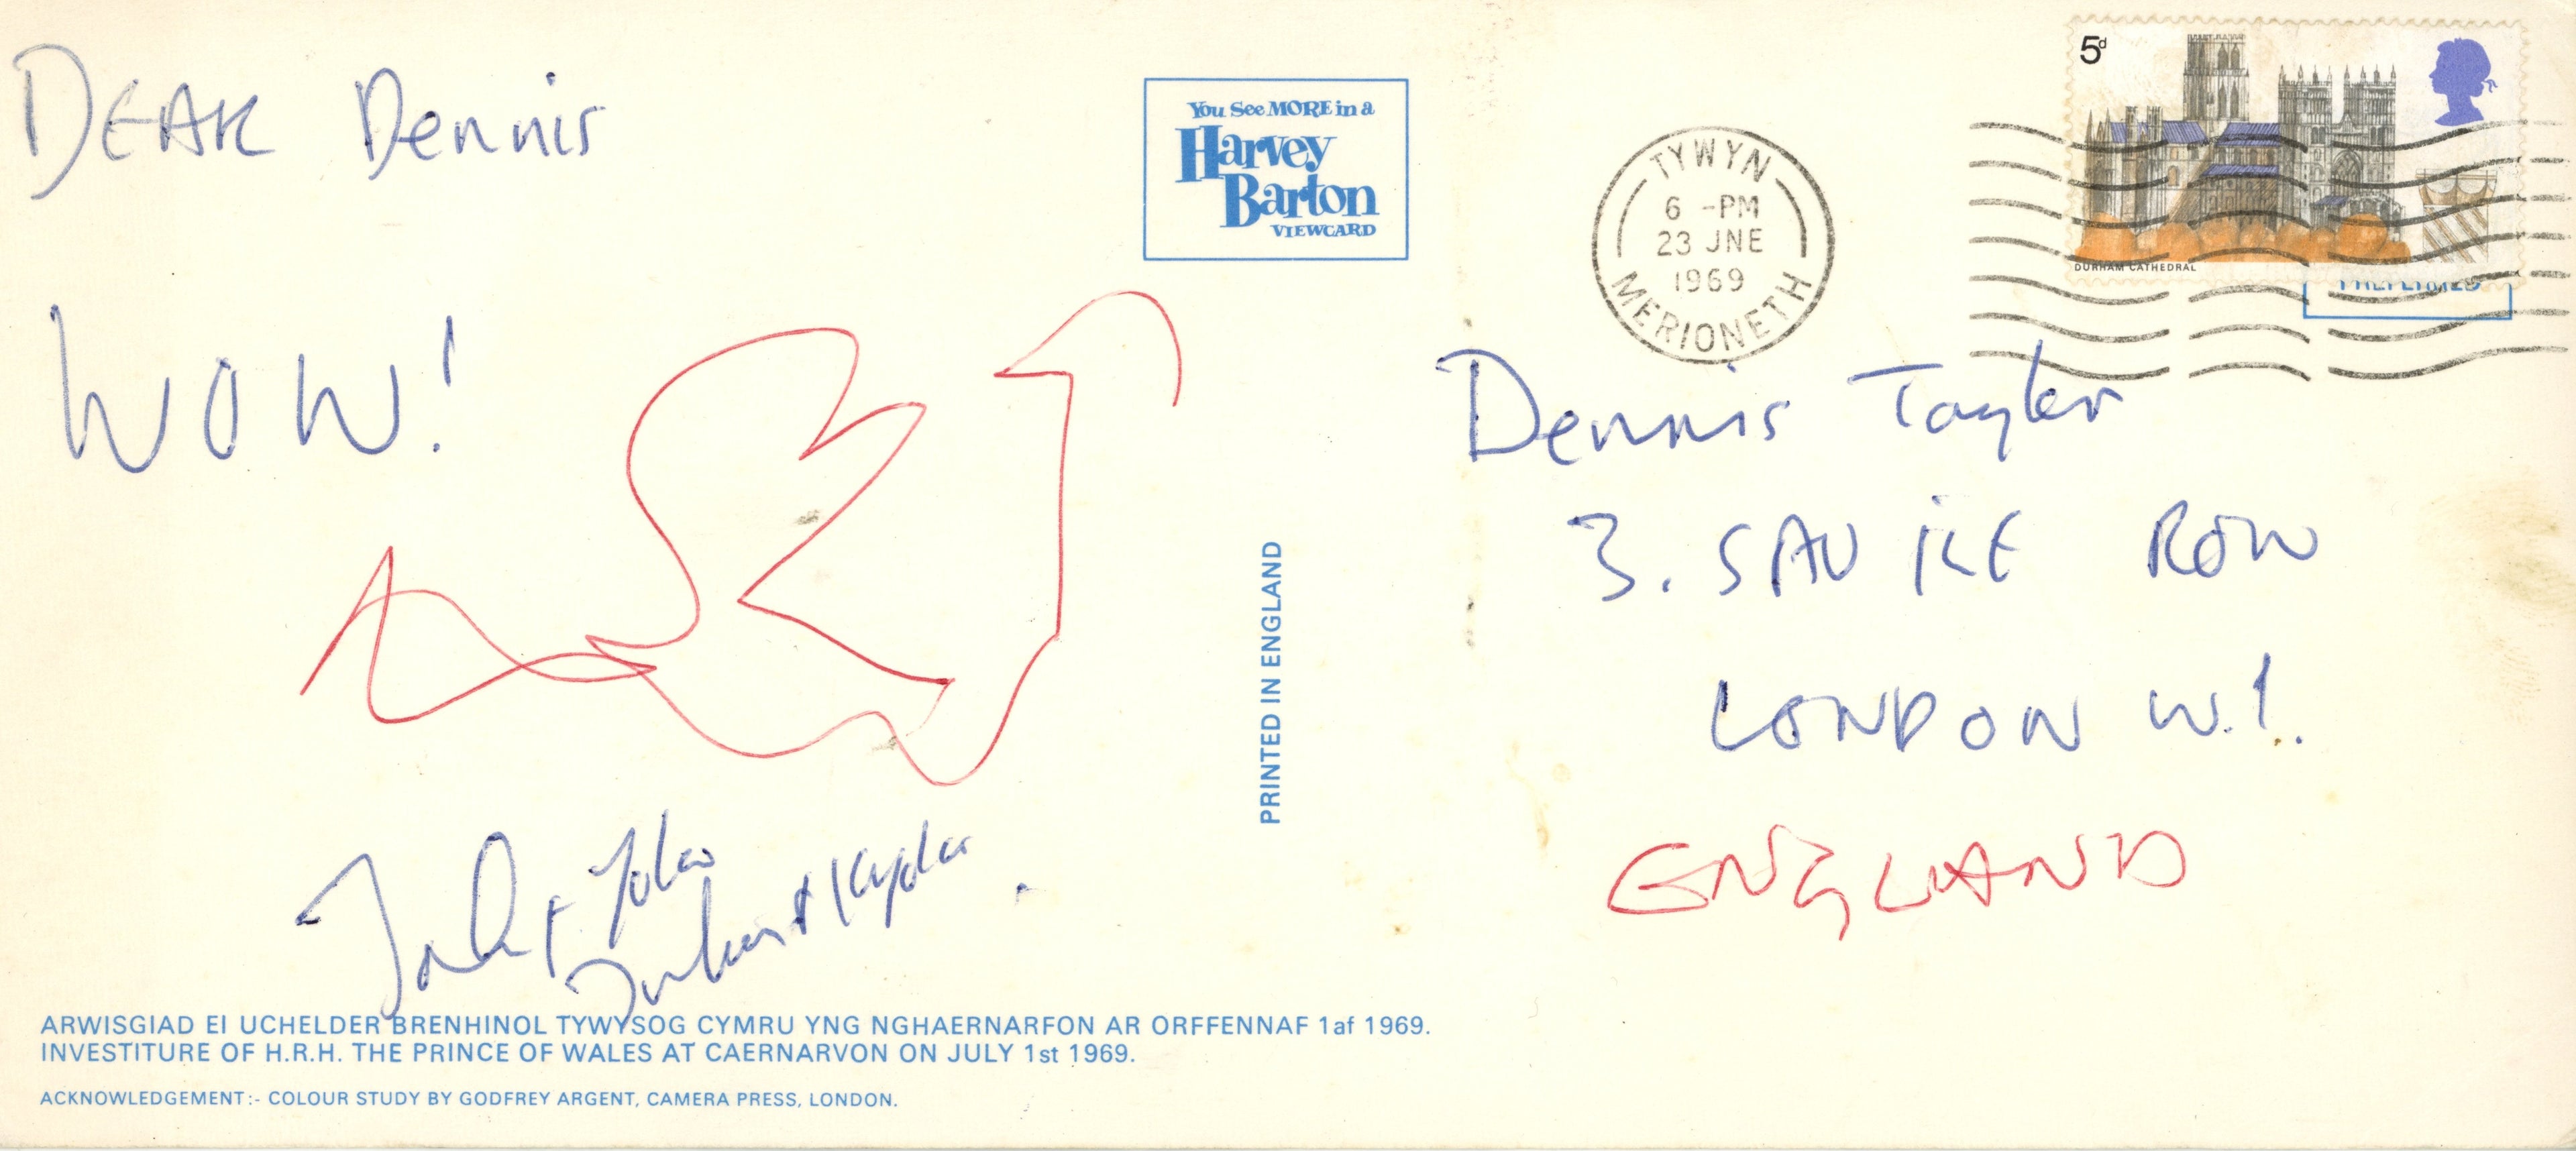 DEAR Dennis
WOW!
John & Yoko
Julian & Kyoko.
You See MORE in a
Harvey
Barton
VIEWCARD
PRINTED IN ENGLAND
TYWYN
6 -PM
23 JNE
1969
MERIONETH
5d
DURHAM CATHEDRAL
Dennis Taylor
3. SAVILE ROW
LONDON W.1.
ENGLAND
ARWISGIAD EI UCHELDER BRENHINOL TYWYSOG CYMRU YNG NGHAERNARFON AR ORFFENNAF 1af 1969.
INVESTITURE OF H.R.H. THE PRINCE OF WALES AT CAERNARVON ON JULY 1st 1969.
ACKNOWLEDGEMENT:- COLOUR STUDY BY GODFREY ARGENT, CAMERA PRESS, LONDON.